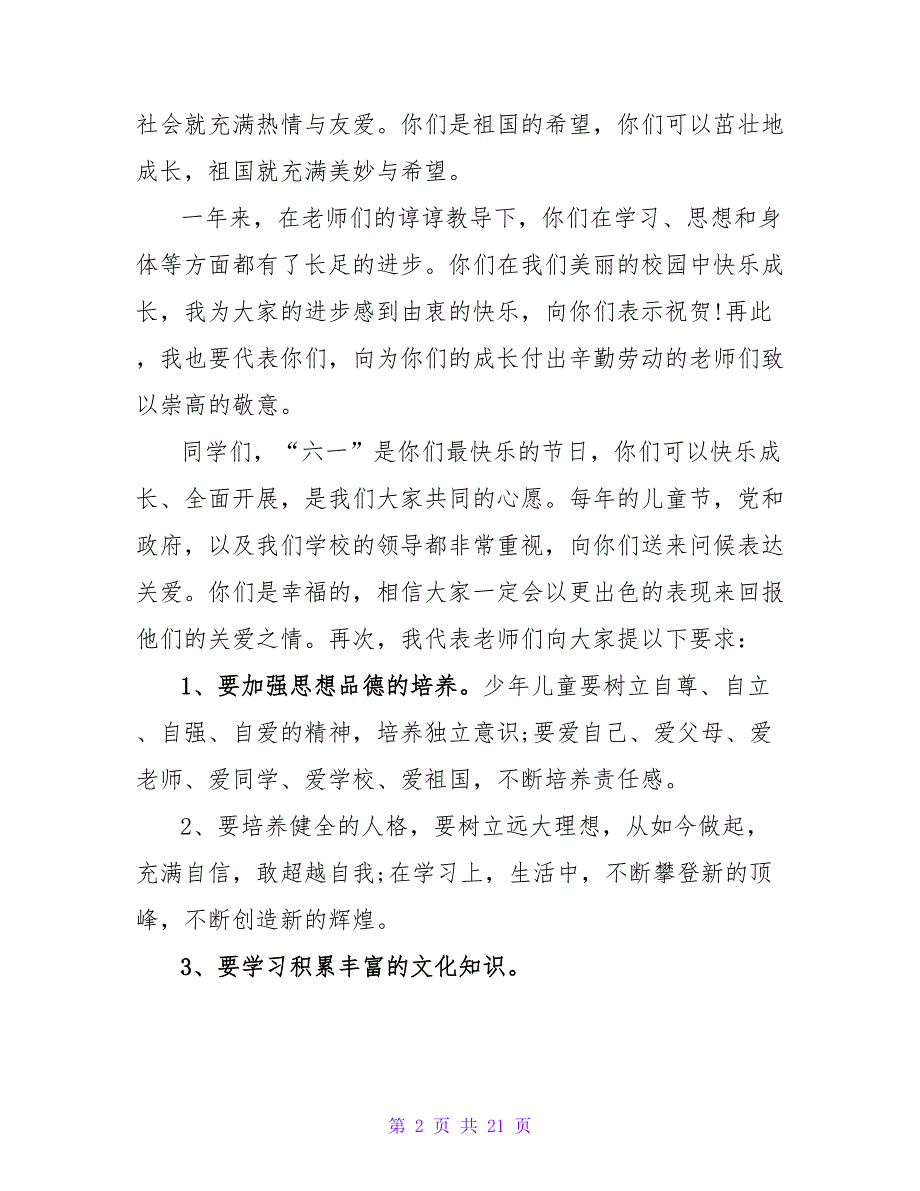 社会就充满热情与友爱。你们是祖国的希望，你们可以茁壮地
成长，祖国就充满美妙与希望。
一年来，在老师们的谆谆教导下，你们在学习、思想和身
体等方面都有了长足的进步。你们在我们美丽的校园中快乐成
长，我为大家的进步感到由衷的快乐，向你们表示祝贺!再此
，我也要代表你们，向为你们的成长付出辛勤劳动的老师们致
以崇高的敬意。
同学们，“六一”是你们最快乐的节日，你们可以快乐成
长、全面开展，是我们大家共同的心愿。每年的儿童节，党和
政府，以及我们学校的领导都非常重视，向你们送来问候表达
关爱。你们是幸福的，相信大家一定会以更出色的表现来回报
他们的关爱之情。再次，我代表老师们向大家提以下要求：
1、要加强思想品德的培养。少年儿童要树立自尊、自立
、自强、自爱的精神，培养独立意识;要爱自己、爱父母、爱
老师、爱同学、爱学校、爱祖国，不断培养责任感。
2、要培养健全的人格，要树立远大理想，从如今做起，
充满自信，敢超越自我;在学习上，生活中，不断攀登新的顶
峰，不断创造新的辉煌。
3、要学习积累丰富的文化知识。
第 2 页 共 21 页